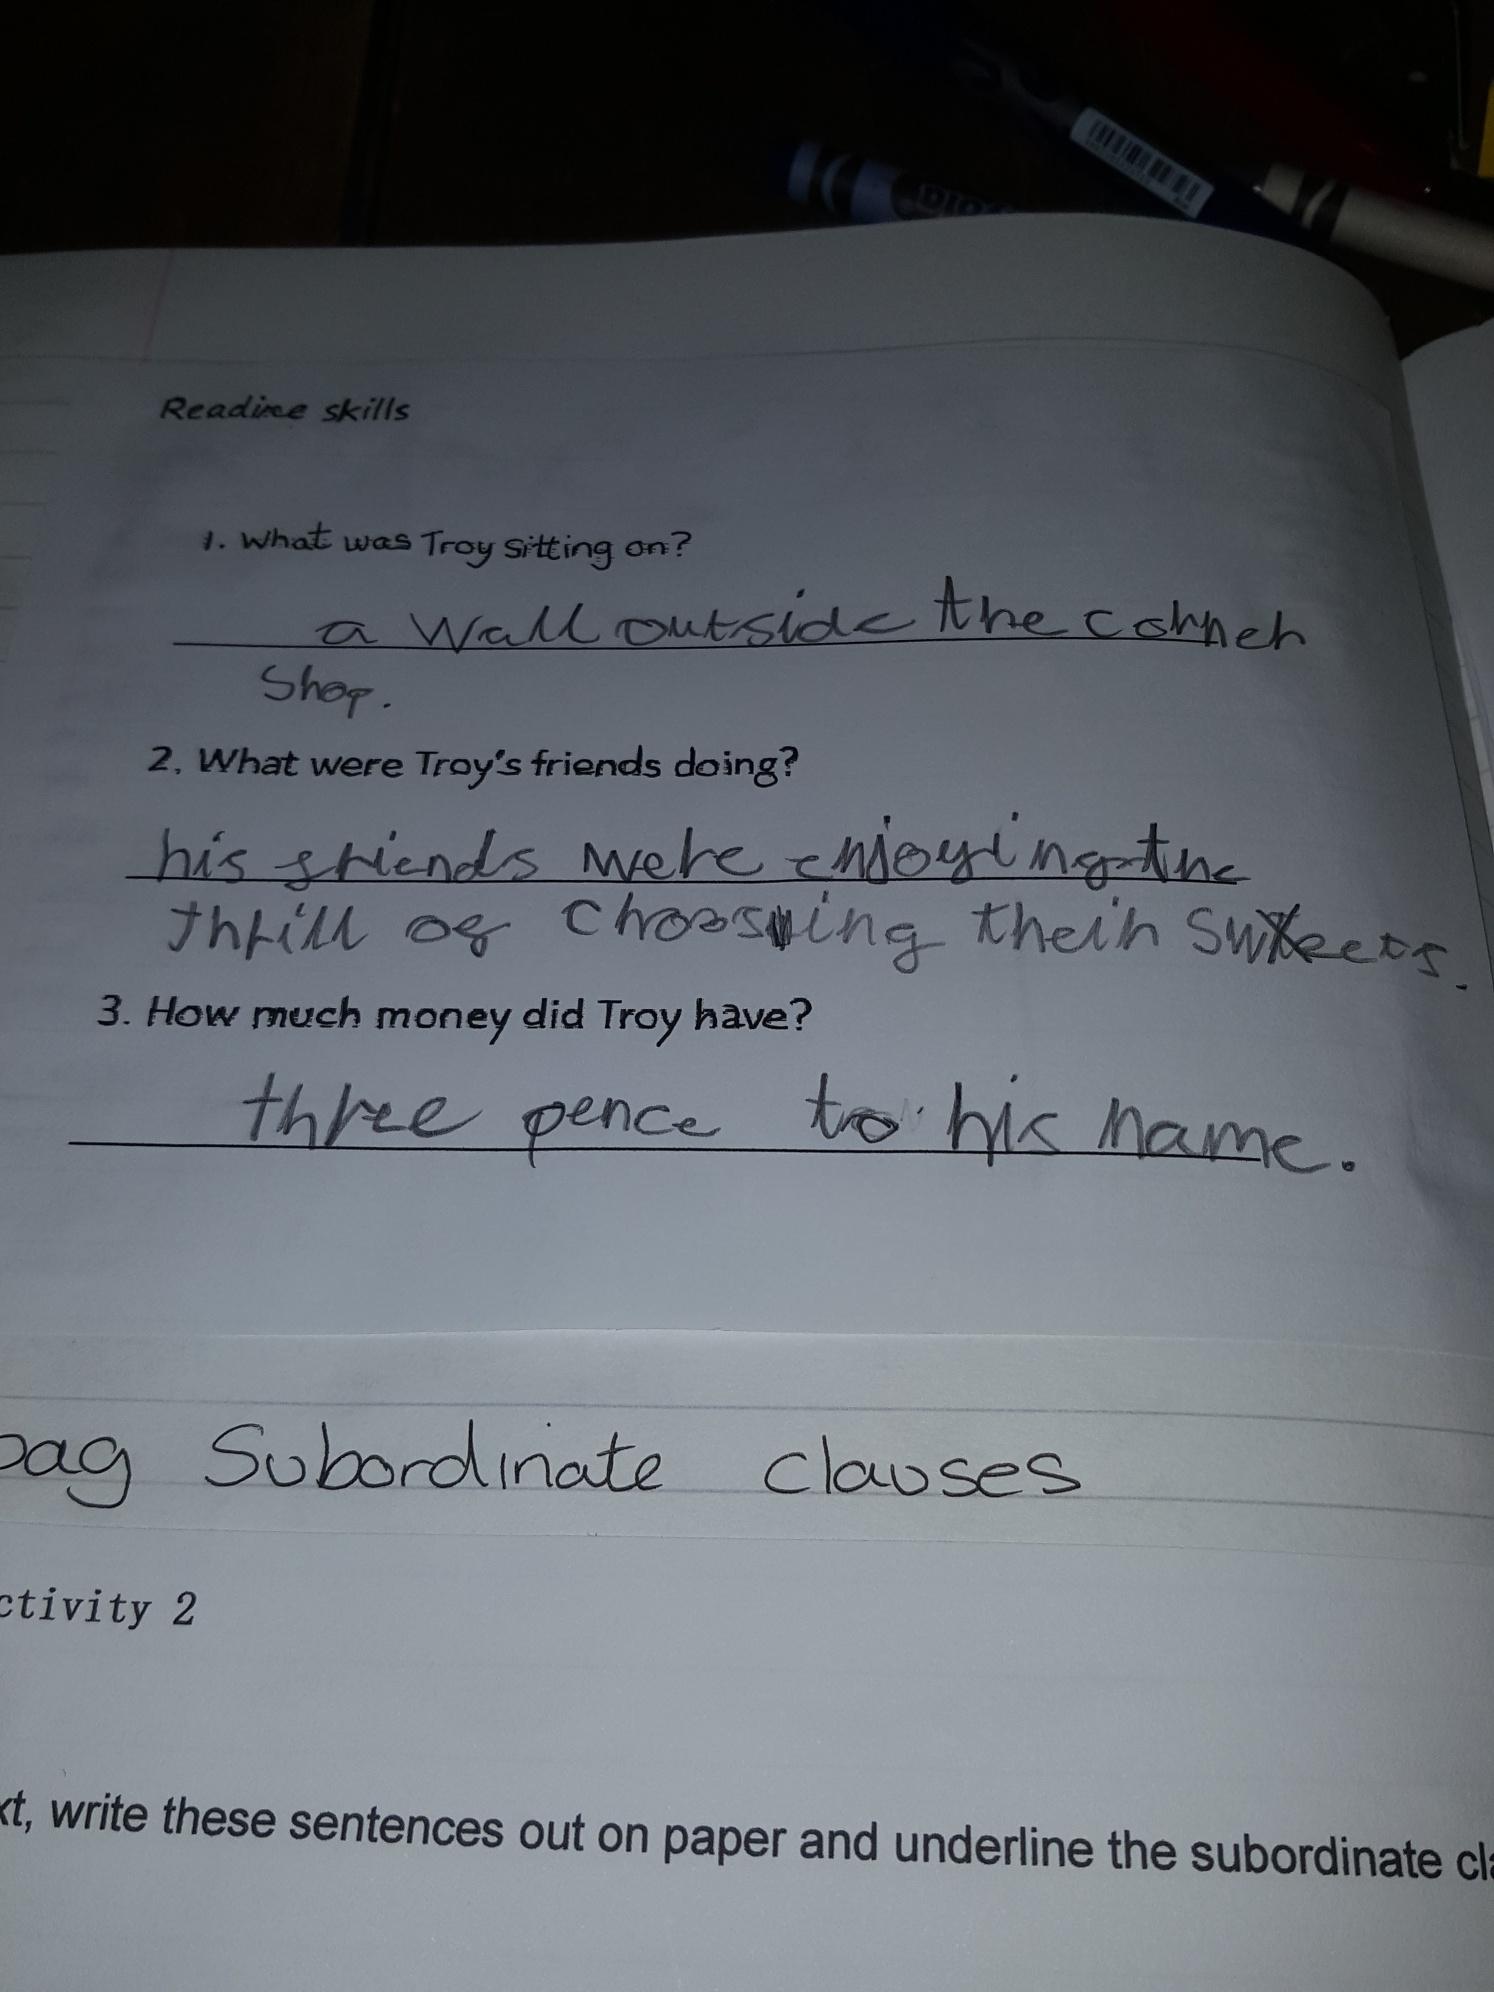 Reading skills
1. What was Troy sitting on?
a wall outside the corner
Shop.
2. What were Troy's friends doing?
his friends were enjoying the
thrill of choosing their sweets.
3. How much money did Troy have?
three pence to his name.
bag Subordinate clauses
ctivity 2
xt, write these sentences out on paper and underline the subordinate cla